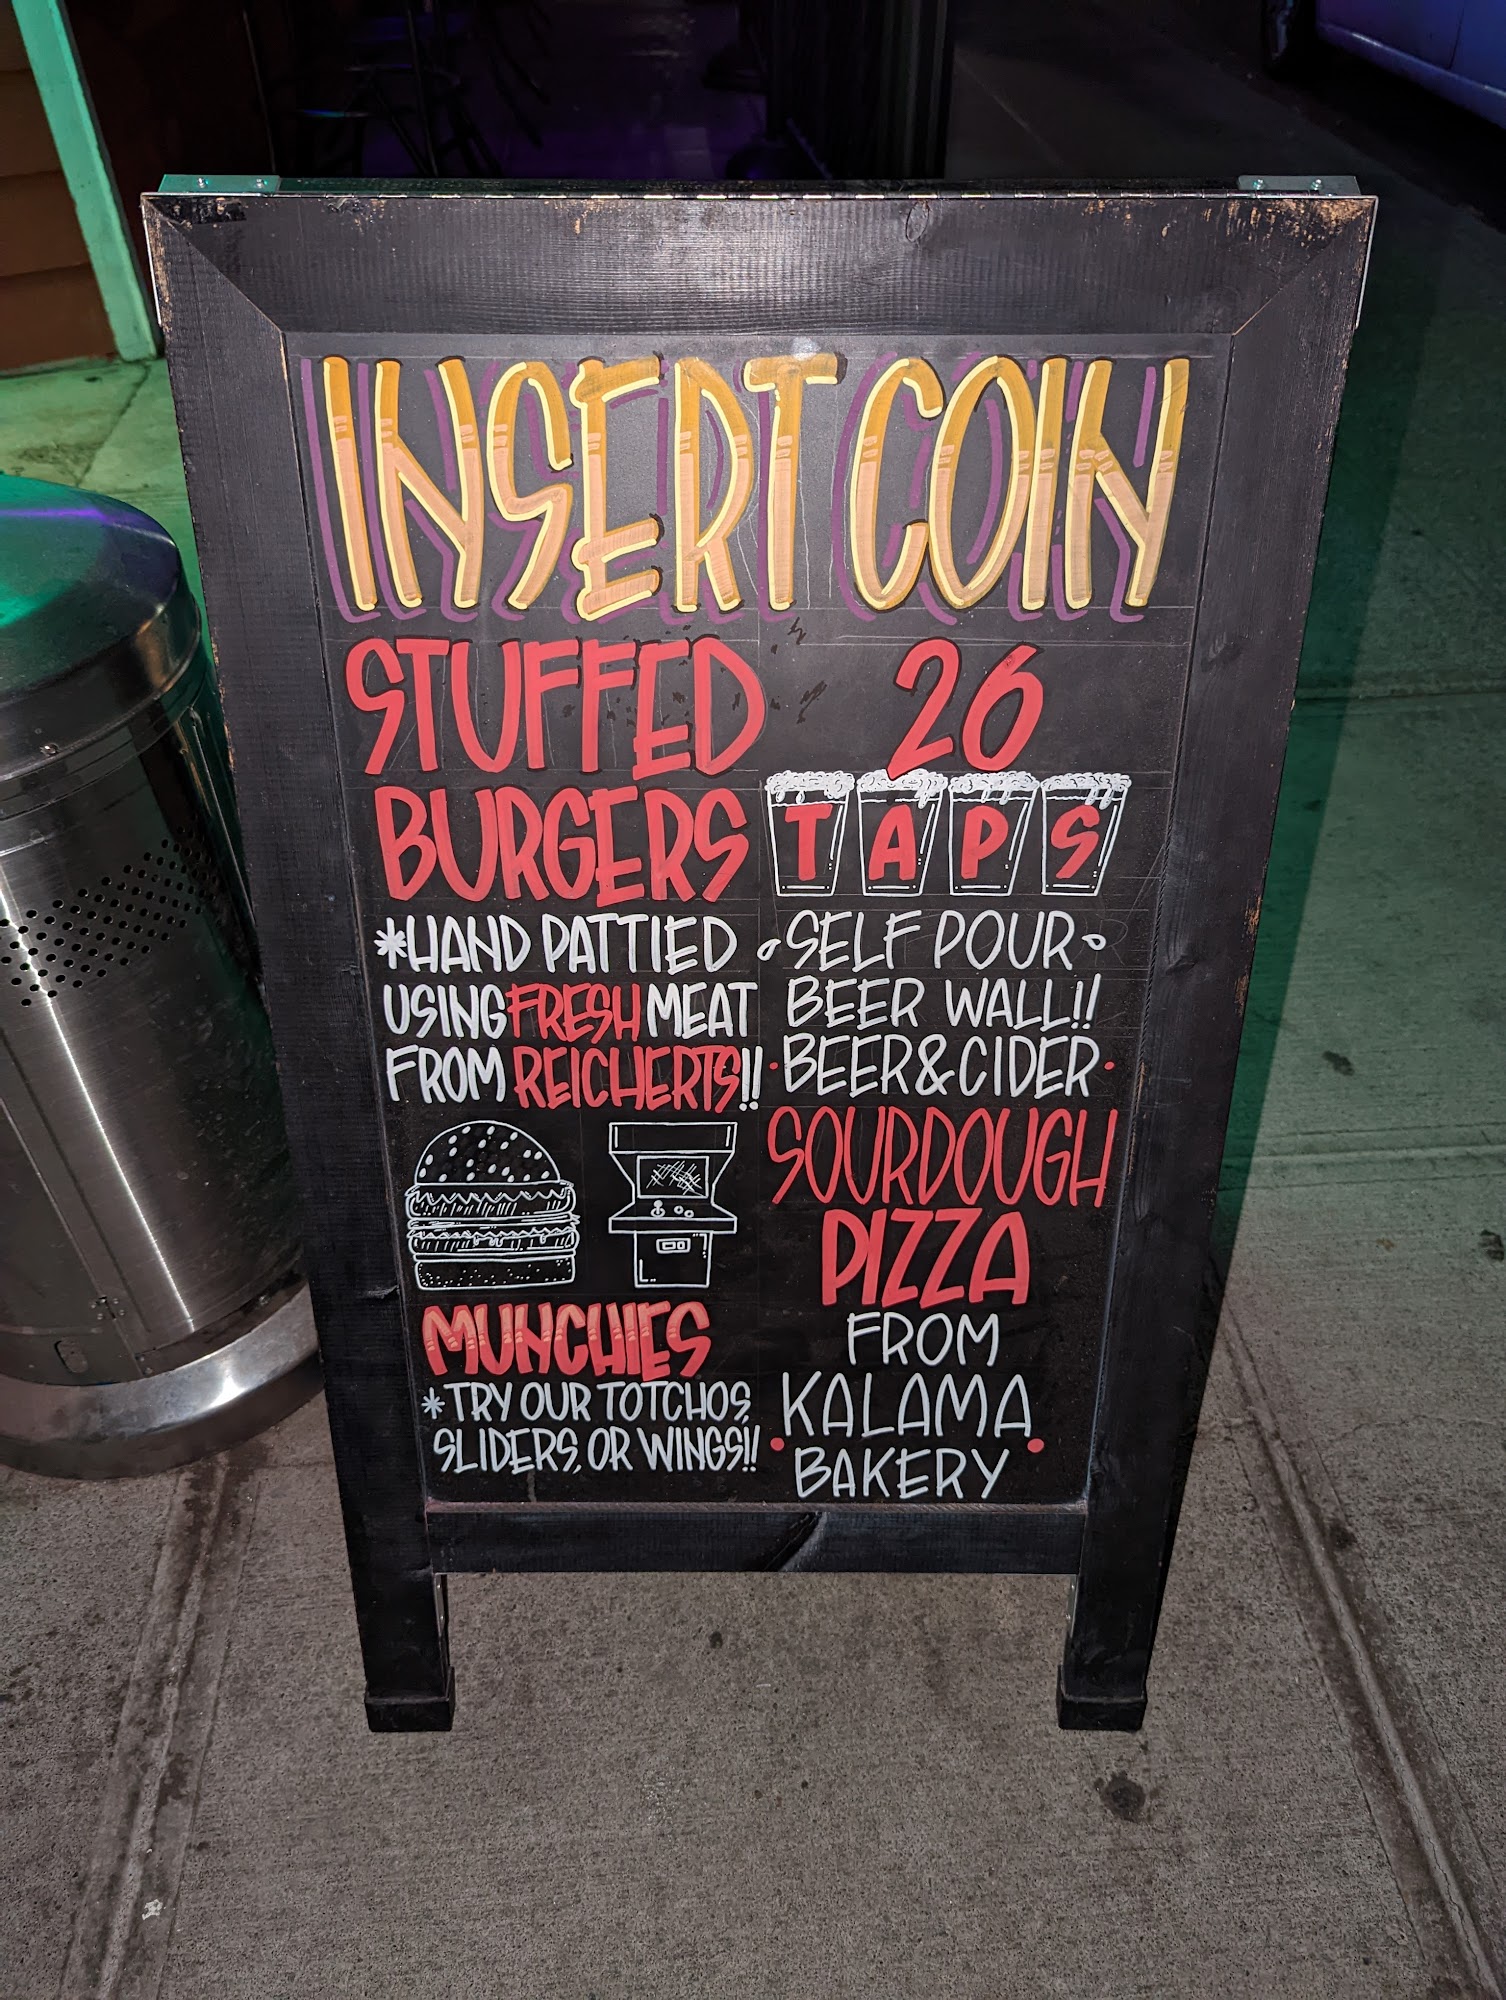 INSERT COIN
STUFFED
BURGERS
*HAND PATTIED
USING FRESH MEAT
FROM REICHERTS!!
MUNCHIES
*TRY OUR TOTCHOS,
SLIDERS, OR WINGS!!
26
TAPS
SELF POUR
BEER WALL!!
·BEER & CIDER·
SOURDOUGH
PIZZA
FROM
KALAMA
BAKERY